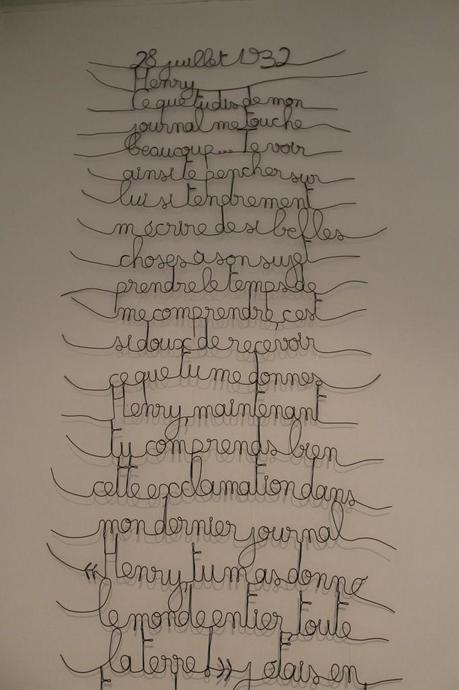 28 juillet 1932
Henry
ce que tu dis de mon
journal me touche
beaucoup... te voir
ainsi te pencher sur
lui si tendrement
m'écrire de si belles
choses à son sujet
prendre le temps de
me comprendre, c'est
si doux de recevoir
ce que tu me donnes
Henry, maintenant
tu comprends bien
cette exclamation dans
mon dernier journal
« Henry, tu m'as donné
le monde entier toute
la terre! » j'étais en